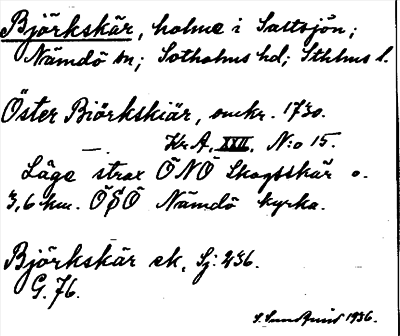 Björkskär, holme i Saltsjön;
Nämdö sn; Sotholms hd; Sthlms l.
Öster Biörkskiär, omkr. 1730.
— Kr.A. XXII. N:o 15.
Läge strax ÖNÖ Skogsskär o.
3,6 km. ÖSÖ Nämdö kyrka.
Björkskär ek. Sj. 236.
G. 76.
S. Sundquist 1936.